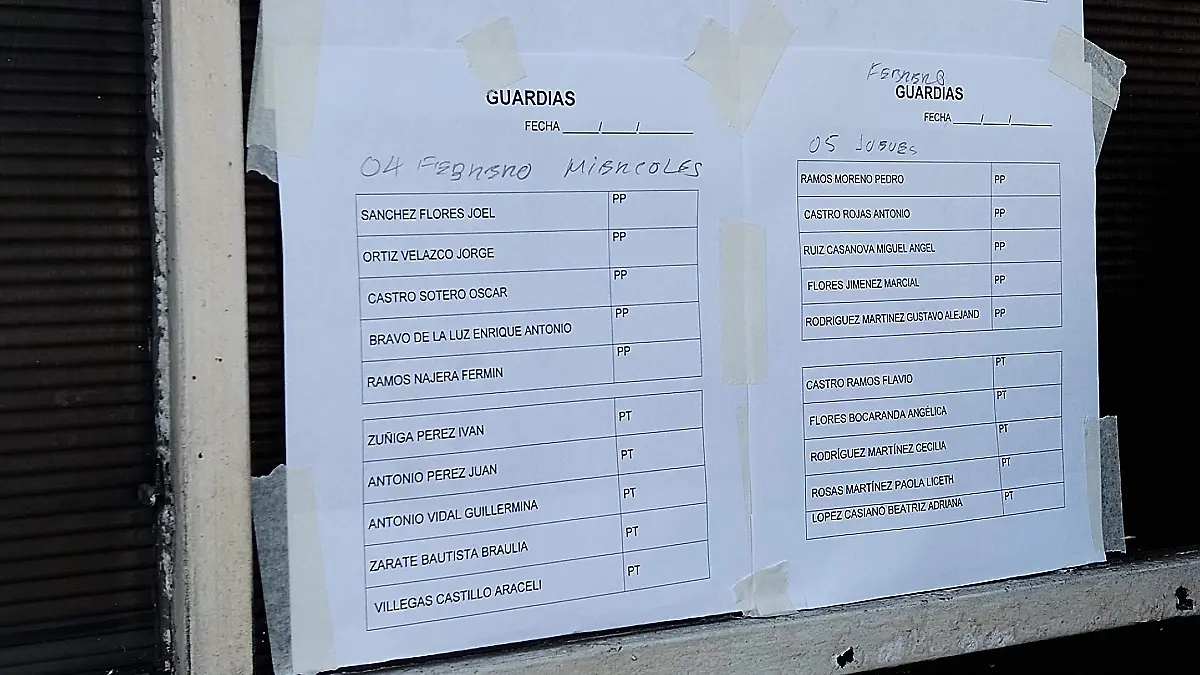 GUARDIAS
FECHA ____/____/______
04 FEBRERO MIERCOLES
SANCHEZ FLORES JOEL PP
ORTIZ VELAZCO JORGE PP
CASTRO SOTERO OSCAR PP
BRAVO DE LA LUZ ENRIQUE ANTONIO PP
RAMOS NAJERA FERMIN PP
ZUÑIGA PEREZ IVAN PT
ANTONIO PEREZ JUAN PT
ANTONIO VIDAL GUILLERMINA PT
ZARATE BAUTISTA BRAULIA PT
VILLEGAS CASTILLO ARACELI PT
FEBRERO
GUARDIAS
FECHA ____/____/______
05 JUEVES
RAMOS MORENO PEDRO PP
CASTRO ROJAS ANTONIO PP
RUIZ CASANOVA MIGUEL ANGEL PP
FLORES JIMENEZ MARCIAL PP
RODRIGUEZ MARTINEZ GUSTAVO ALEJAND PP
CASTRO RAMOS FLAVIO PT
FLORES BOCARANDA ANGÉLICA PT
RODRÍGUEZ MARTÍNEZ CECILIA PT
ROSAS MARTÍNEZ PAOLA LICETH PT
LOPEZ CASIANO BEATRIZ ADRIANA PT